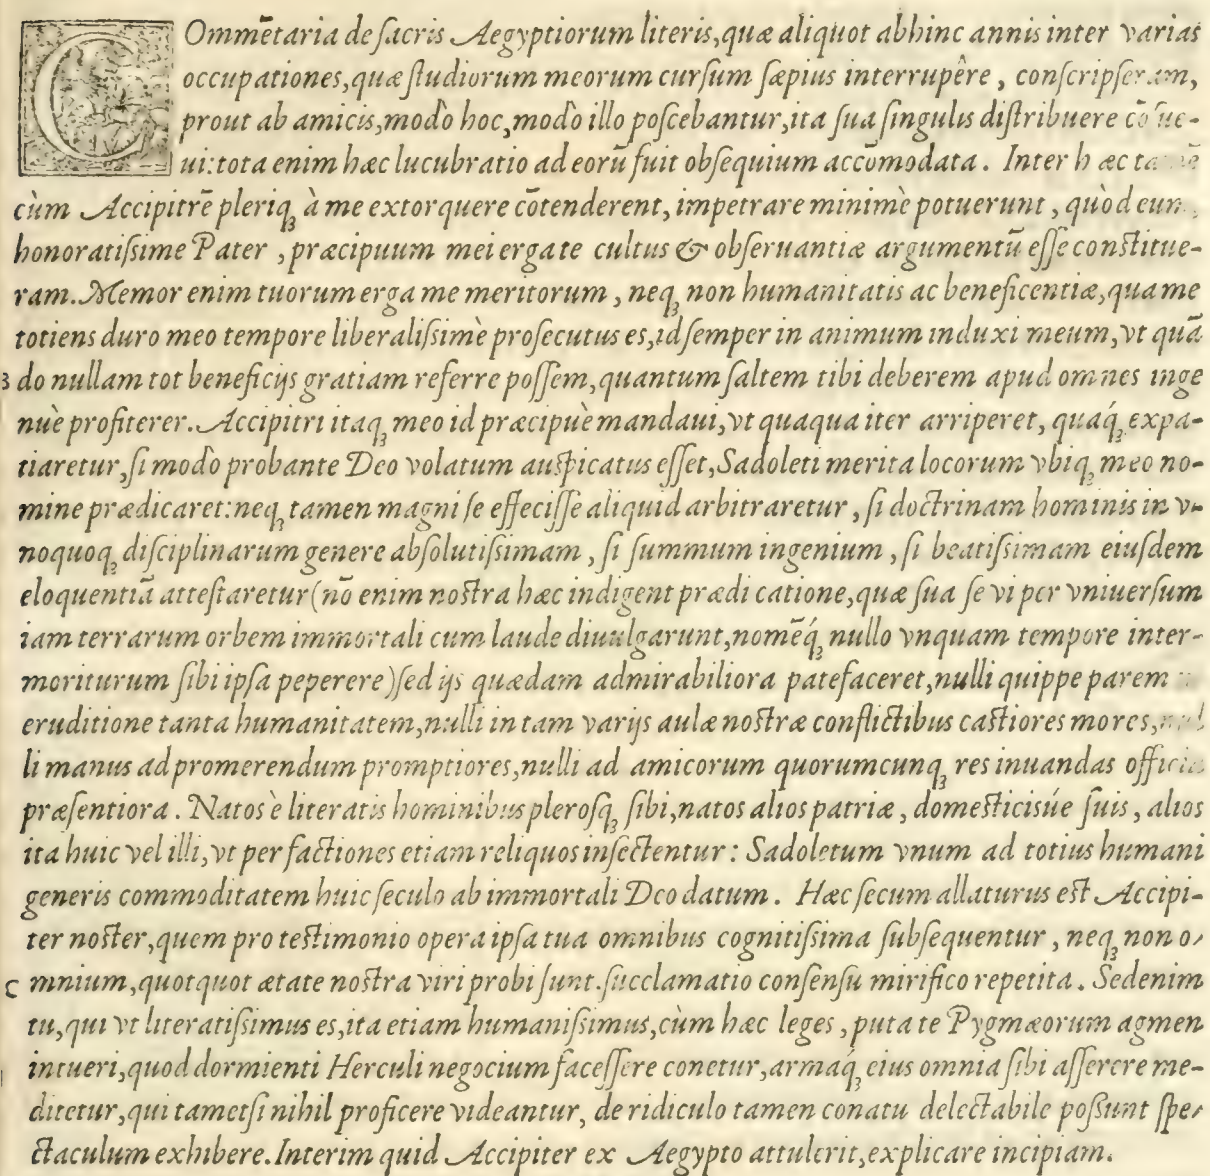 COmmētaria de ſacris Aegyptiorum literis, quæ aliquot abhinc annis inter varias
occupationes, quæ ſtudiorum meorum curſum ſæpius interrupêre, conſcripſeram,
prout ab amicis, modò hoc, modò illo poſcebantur, ita ſua ſingulis diſtribuere cōſue-
ui: tota enim hæc lucubratio ad eorū fuit obſequium accōmodata. Inter hæc tamē
cùm Accipitrē pleriqꝫ à me extorquere cōtenderent, impetrare minimè potuerunt, quòd eum,
honoratiſsime Pater, præcipuum mei erga te cultus & obſeruantiæ argumentū eſſe conſtitue-
ram. Memor enim tuorum erga me meritorum, neqꝫ non humanitatis ac beneficentiæ, qua me
totiens duro meo tempore liberaliſsimè proſecutus es, id ſemper in animum induxi meum, vt quā
B do nullam tot beneficijs gratiam referre poſſem, quantum ſaltem tibi deberem apud omnes inge
nuè profiterer. Accipitri itaqꝫ meo id præcipuè mandaui, vt quaqua iter arriperet, quáqꝫ expa-
tiaretur, ſi modò probante Deo volatum auſpicatus eſſet, Sadoleti merita locorum vbiqꝫ meo no-
mine prædicaret: neqꝫ tamen magni ſe effeciſſe aliquid arbitraretur, ſi doctrinam hominis in v-
noquoqꝫ diſciplinarum genere abſolutiſsimam, ſi ſummum ingenium, ſi beatiſsimam eiuſdem
eloquentiā atteſtaretur (nō enim noſtra hæc indigent prædicatione, quæ ſua ſe vi per vniuerſum
iam terrarum orbem immortali cum laude diuulgarunt, nomēqꝫ́ nullo vnquam tempore inter-
moriturum ſibi ipſa peperere) ſed ijs quædam admirabiliora patefaceret, nulli quippe parem
eruditione tanta humanitatem, nulli in tam varijs aulæ noſtræ conflictibus caſtiores mores, nul
li manus ad promerendum promptiores, nulli ad amicorum quorumcunqꝫ res iuuandas officia
præſentiora. Natos è literatis hominibus pleroſqꝫ ſibi, natos alios patriæ, domeſticisúe ſuis, alios
ita huic vel illi, vt per factiones etiam reliquos inſectentur: Sadoletum vnum ad totius humani
generis commoditatem huic ſeculo ab immortali Deo datum. Hæc ſecum allaturus eſt Accipi-
ter noſter, quem pro teſtimonio opera ipſa tua omnibus cognitiſsima ſubſequentur, neqꝫ non o-
C mnium, quotquot ætate noſtra viri probi ſunt. ſucclamatio conſenſu mirifico repetita. Sed enim
tu, qui vt literatiſsimus es, ita etiam humaniſsimus, cùm hæc leges, puta te Pygmæorum agmen
intueri, quod dormienti Herculi negocium faceſſere conetur, armaqꝫ́ eius omnia ſibi aſſerere me-
ditetur, qui tametſi nihil proficere videantur, de ridiculo tamen conatu delectabile poſſunt ſpe-
ctaculum exhibere. Interim quid Accipiter ex Aegypto attulerit, explicare incipiam.